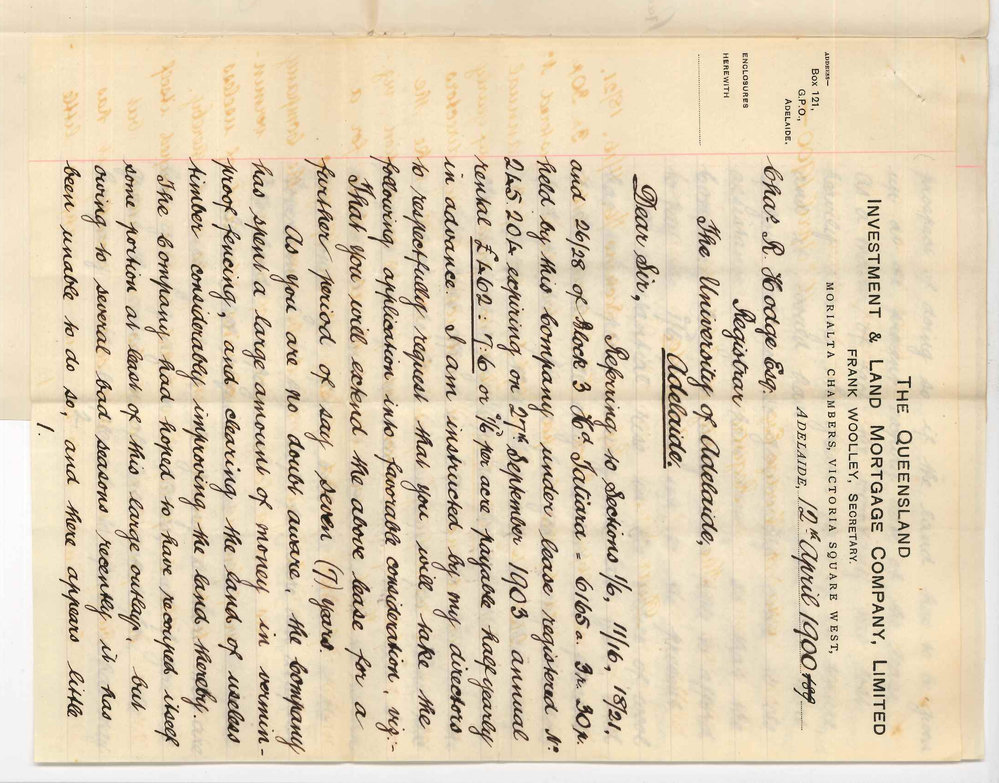 THE QUEENSLAND
INVESTMENT & LAND MORTGAGE COMPANY, LIMITED
FRANK WOOLLEY, SECRETARY.
MORIALTA CHAMBERS, VICTORIA SQUARE WEST,
ADELAIDE, 12th April 1900 189
ADDRESS—
Box 121,
G.P.O.,
ADELAIDE.
ENCLOSURES
HEREWITH
Chas. R. Hodge Esq.
Registrar
The University of Adelaide,
Adelaide.
Dear Sir,
Referring to Sections 1/6, 11/16, 18/21,
and 26/28 of Block 3 Hd Tatiara = 6165a 3r. 30p.
held by this Company under lease registered No.
245.204 expiring on 27th September 1903 annual
rental £462:7:6 or 1/6 per acre payable half yearly
in advance. I am instructed by my directors
to respectfully request that you will take the
following application into favorable consideration, viz:-
That you will extend the above lease for a
further period of say seven (7) years.
As you are no doubt aware, the Company
has spent a large amount of money in vermin-
proof fencing, and clearing the land of useless
timber considerably improving the land thereby.
The Company had hoped to have recouped itself
some portion at least of this large outlay, but
owing to several bad seasons recently it has
been unable to do so, and there appears little
1.